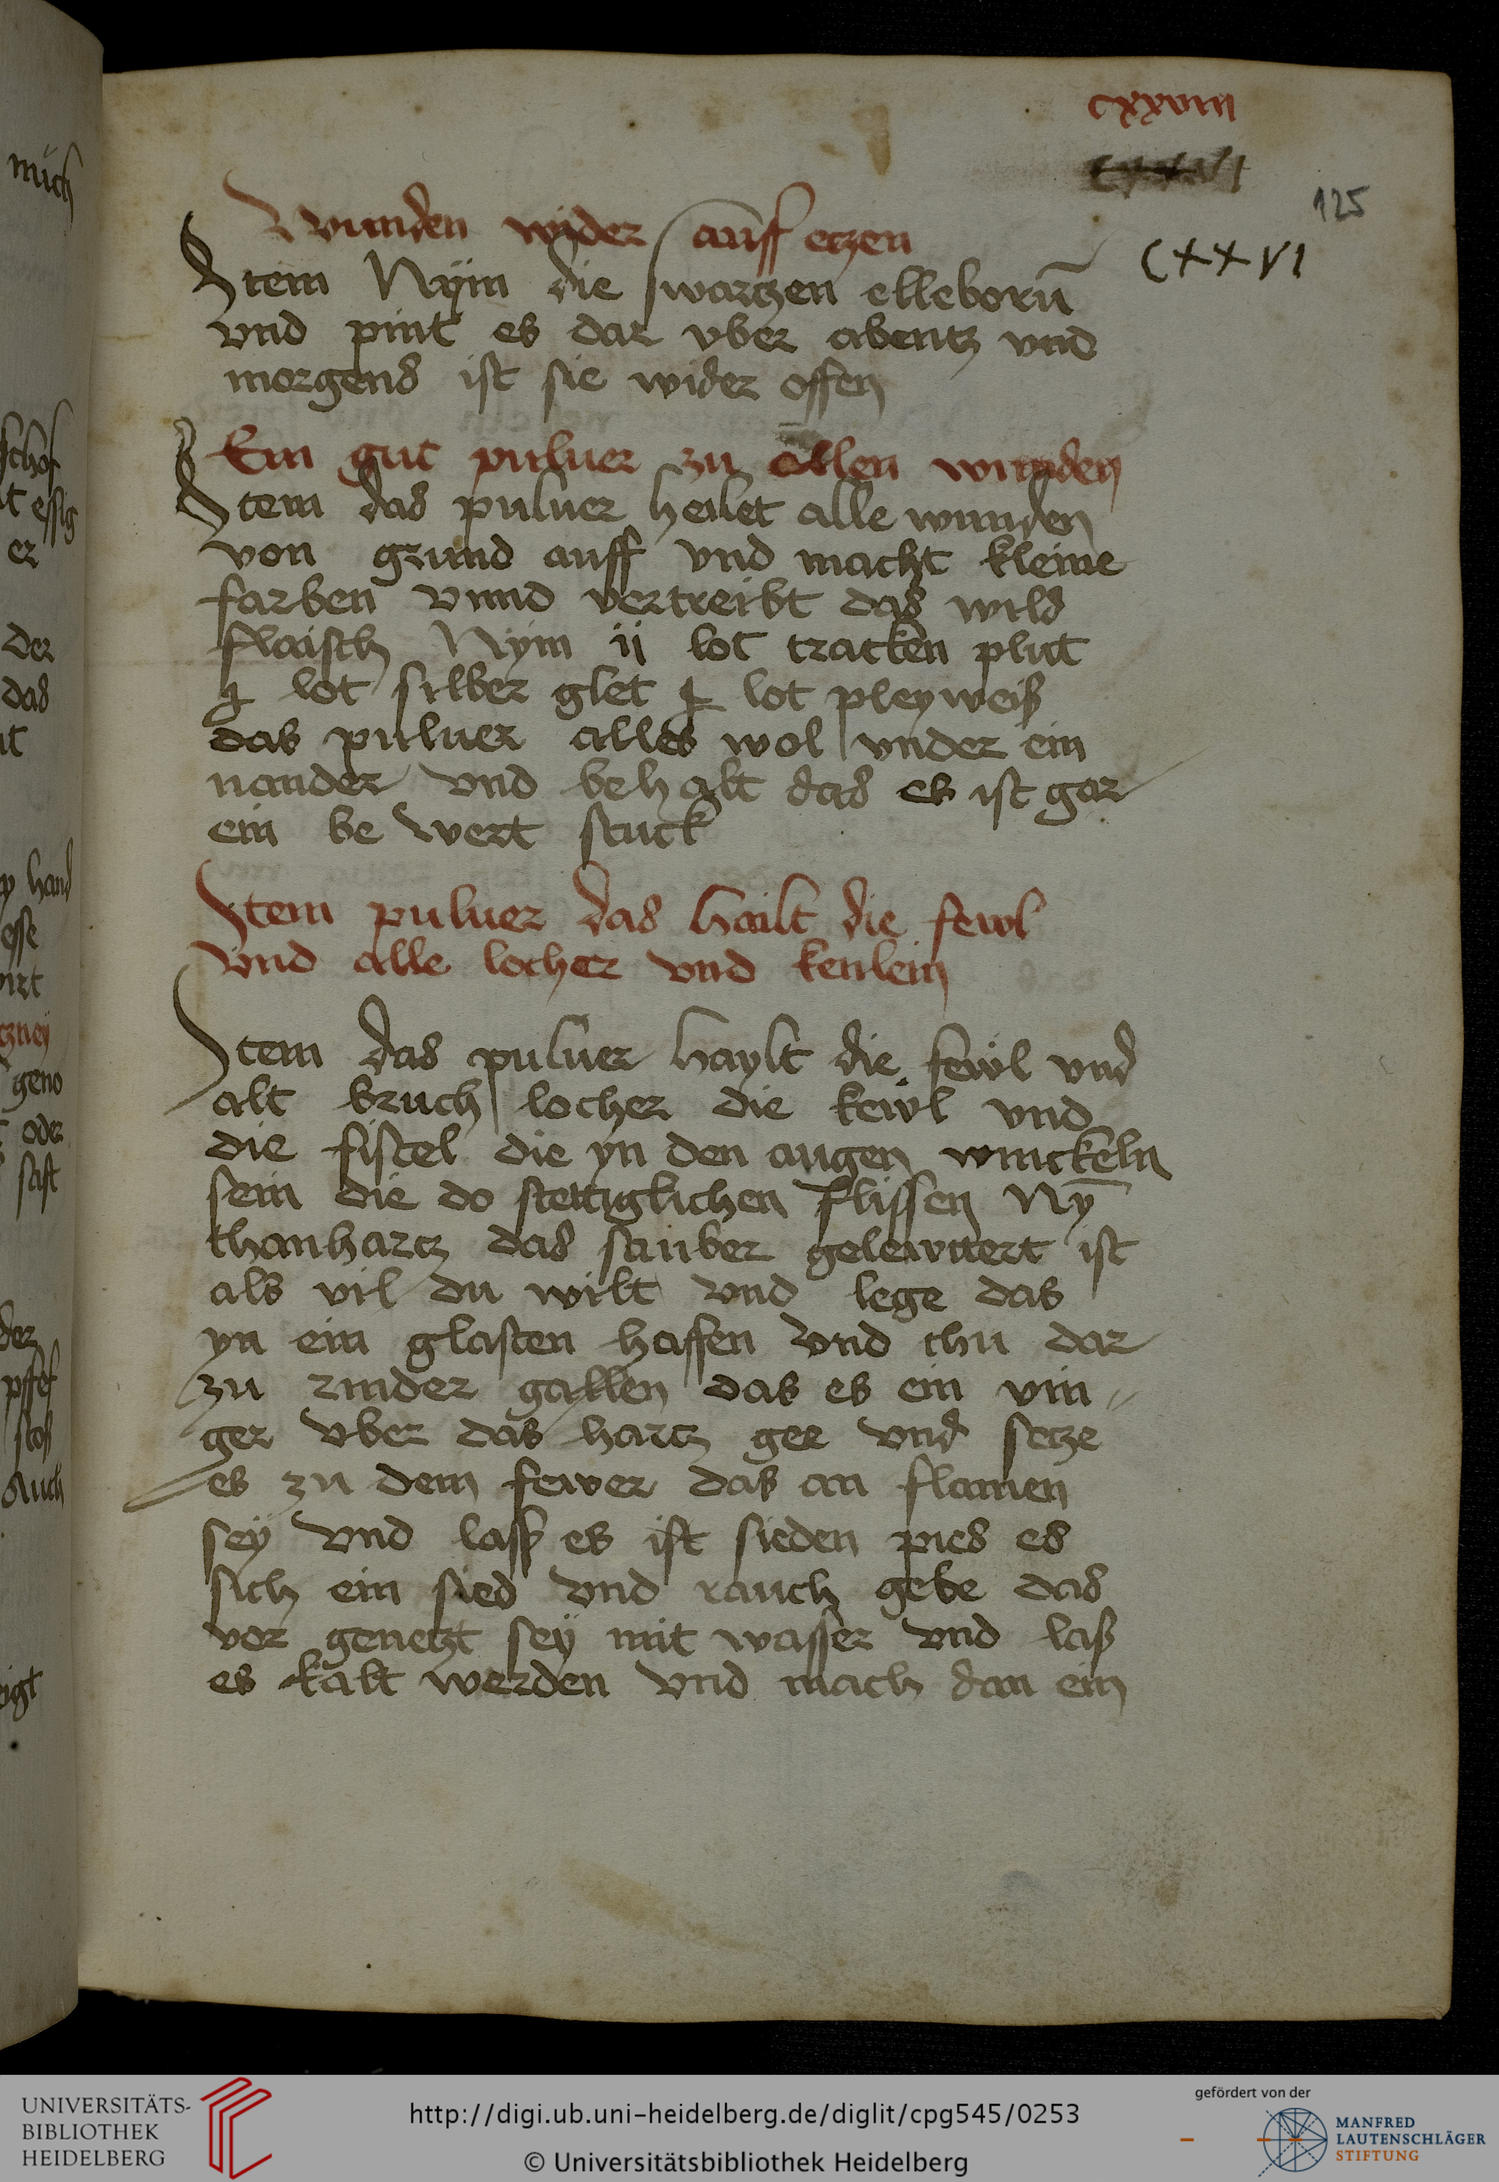 cxxviii
125
cxxvi
Wunden wider auff eczen
Item Nÿm die swarczen elleborū
vnd pint es dar vber abentz vnd
morgens ist sie wider offen
Ein gut puluer zu allen wunden
Item das puluer heilet alle wunden
von grund auff vnd macht kleine
farben vnnd vertreibt das wild
flaisch Nÿm ij lot tracken plut
lot silber glet lot pleyweiß
das puluer alles wol vnder ein
nander vnd behalt das es ist gar
ein be wert stuck
Item puluer das hailt die fewl
vnd alle locher vnd kenlein
Item das puluer haylt die fewl vnd
alt bruch locher die kewl vnd
die fistel die yn den augen winckeln
sein die do stettiglichen flissen Nȳ
thanharcz das sauber gelewttert ist
als vil du wilt vnd lege das
yn ein glasten haffen vnd thu dar
zu rinder gallen das es ein vin〟
ger vber das harcz gee vnd secze
es zu dem fewer das an flamen
seÿ vnd lasß es ist sieden pies es
sich ein sied vnd rauch gebe das
vor geneczt seÿ mit wasser vnd laß
es kalt werden vnd mach dan ein
mich
schof
essig
er
der
das
hand
esse
geno
oder
saft
der
stoß
Auch
UNIVERSITÄTS-
BIBLIOTHEK
HEIDELBERG
http://digi.ub.uni-heidelberg.de/diglit/cpg545/0253
© Universitätsbibliothek Heidelberg
gefördert von der
MANFRED
LAUTENSCHLÄGER
STIFTUNG